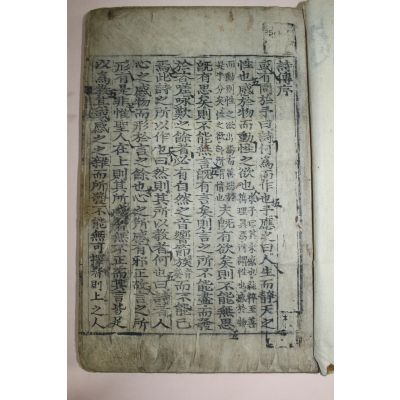 詩傳序
或有問於予曰詩何為而作也予應之曰人生而靜天之
性也感於物而動性之欲也
夫既有欲矣則不能無思
既有思矣則不能無言既有言矣則言之所不能盡而發
於咨嗟咏歎之餘者必有自然之音響節族而不能已
焉此詩之所以作也曰然則其所以教者何也曰詩者人
心之感物而形於言之餘也心之所感有邪正故言之所
形有是非惟聖人在上則其所感者無不正而其言皆足
以為教其或感之之雜而所發不能無可擇者則上之人